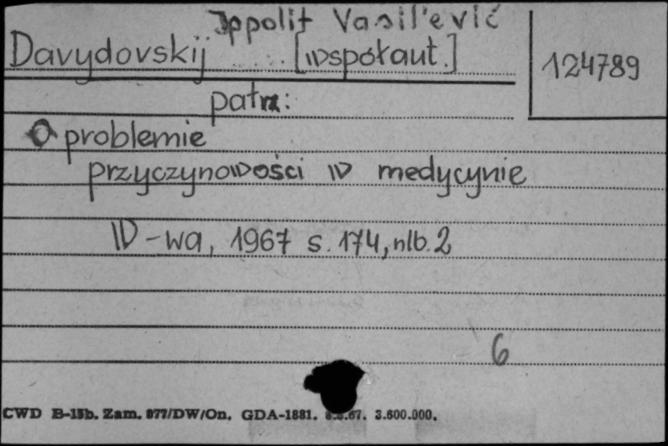 Ippolit Vasil'evič
Davydovskij [współaut.]
124789
patrz:
O problemie
przyczynowości w medycynie
W-wa, 1967 s. 174, nlb. 2
6
CWD B-15b. Zam. 877/DW/On. GDA-1881. 67. 3.600.000.